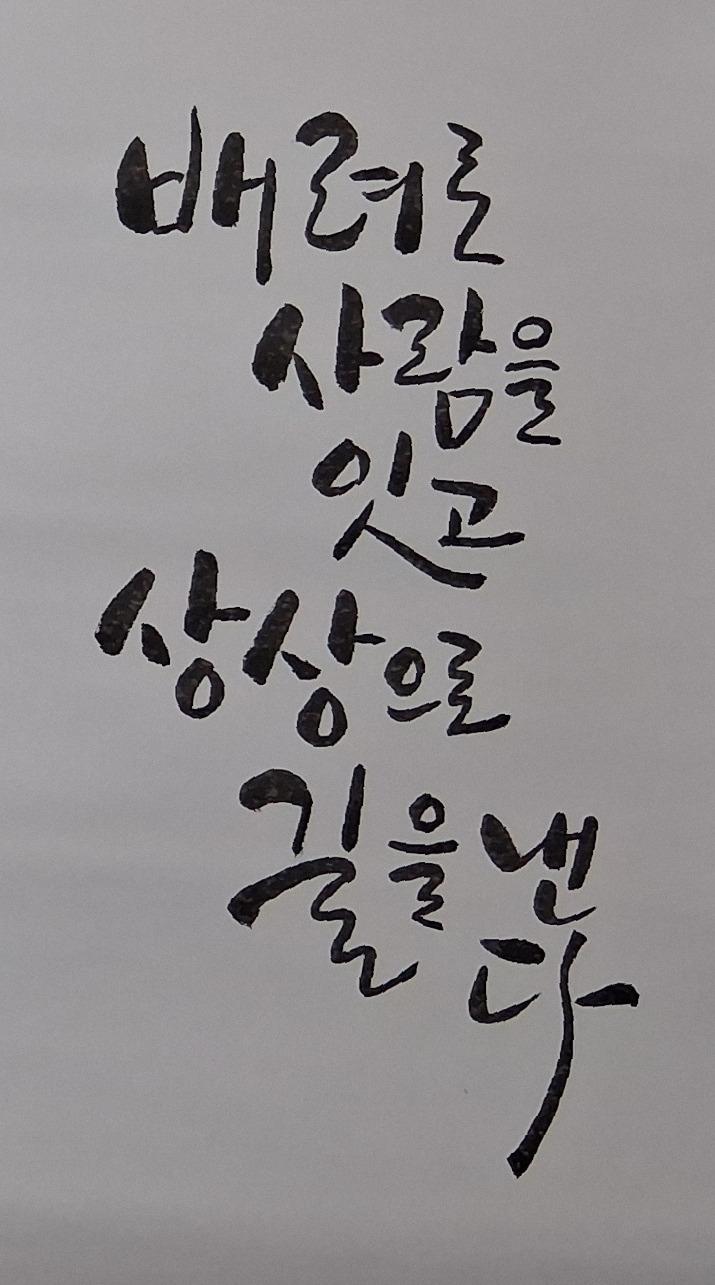 배려로
사람을
잇고
상상으로
길을 낸
다